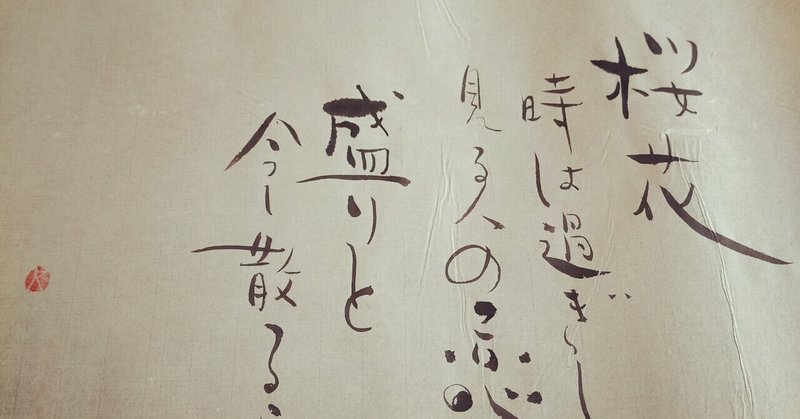 桜花
時は過ぎ
見る人の恋
盛りと
今し散る